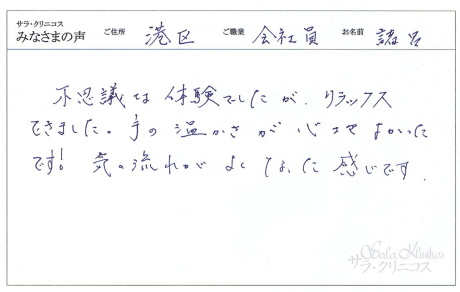 サラ・クリニコス
みなさまの声 ご住所 港区 ご職業 会社員 お名前 諸呂
不思議な体験でしたが、リラックス
できました。手の温かさが心地よかった
です! 気の流れがよくなった感じです.
Sala Klinikos
サラ・クリニコス